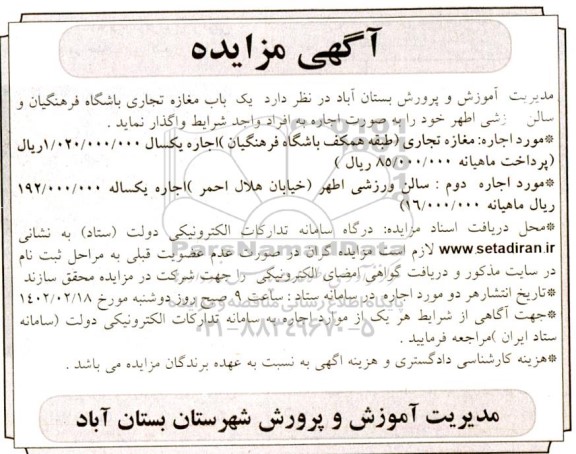 آگهی مزایده
مدیریت آموزش و پرورش بستان آباد در نظر دارد یک باب مغازه تجاری باشگاه فرهنگیان و
سالن زشی اطهر خود را به صورت اجاره به افراد واجد شرایط واگذار نماید .
*مورد اجاره: مغازه تجاری (طبقه همکف باشگاه فرهنگیان )اجاره یکسال ۱/۰۲۰/۰۰۰/۰۰۰ریال
(پرداخت ماهیانه ۸۵/۰۰۰/۰۰۰ ریال )
*مورد اجاره دوم : سالن ورزشی اطهر (خیابان هلال احمر )اجاره یکساله ۱۹۲/۰۰۰/۰۰۰
ریال ماهیانه ۱۶/۰۰۰/۰۰۰)
*محل دریافت اسناد مزایده: درگاه سامانه تدارکات الکترونیکی دولت (ستاد) به نشانی
www.setadiran.ir لازم است مزایده گران در صورت عدم عضویت قبلی به مراحل ثبت نام
در سایت مذکور و دریافت گواهی امضای الکترونیکی را جهت شرکت در مزایده محقق سازند
*تاریخ انتشارهر دو مورد اجاره در سامانه ستاد : ساعت ۹ صبح روز دوشنبه مورخ ۱۴۰۲/۰۲/۱۸
*جهت آگاهی از شرایط هر یک از موارد اجاره به سامانه تدارکات الکترونیکی دولت (سامانه
ستاد ایران )مراجعه فرمایید .
*هزینه کارشناسی دادگستری و هزینه اگهی به نسبت به عهده برندگان مزایده می باشد .
مدیریت آموزش و پرورش شهرستان بستان آباد
ParsNamadData
۰۲۱-۸۸۳۴۹۶۷۰-۵